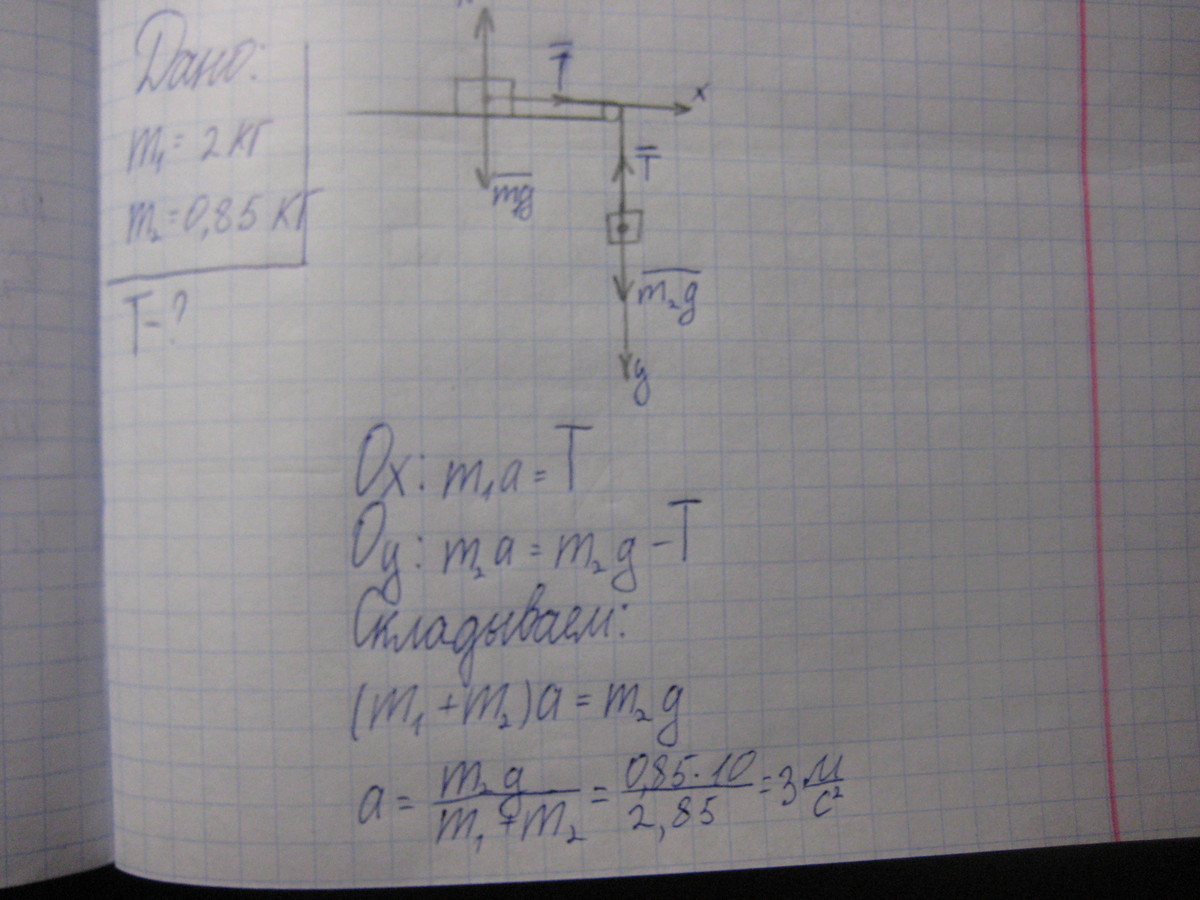 Дано:
m₁ = 2 кг
m₂ = 0,85 кг
T - ?
T
x
mg
T
m₂g
y
Ox: m₁a = T
Oy: m₂a = m₂g - T
Складываем:
(m₁ + m₂)a = m₂g
a = m₂g / (m₁ + m₂) = 0,85·10 / 2,85 = 3 м/с²